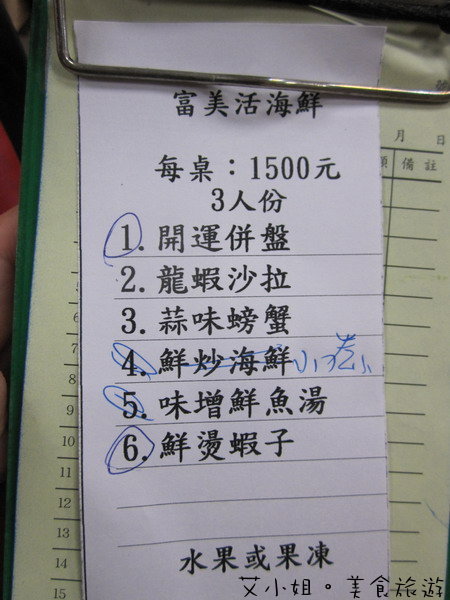 富美活海鮮
號
月 日
額 備註
每桌：1500元
3人份
1. 開運併盤
2. 龍蝦沙拉
3. 蒜味螃蟹
4. 鮮炒海鮮 小卷
5. 味增鮮魚湯
6. 鮮燙蝦子
7
8
9
10
11
12
13
14
15
水果或果凍
艾小姐。美食旅遊